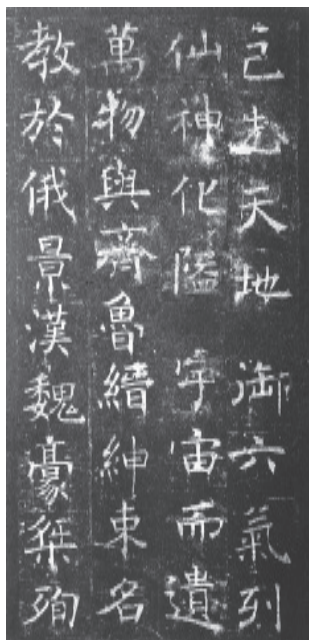 己先天地 御六氣列
仙神化隘 宇宙而遺
萬物與齊魯縉紳束名
教於俄景漢魏豪桀殉